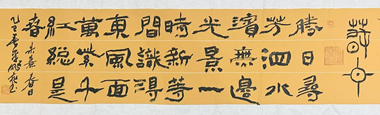 勝日尋
芳泗水
濱無邊
光景一
時新等
間識得
東風面
萬紫千
紅総是
春 朱熹春日